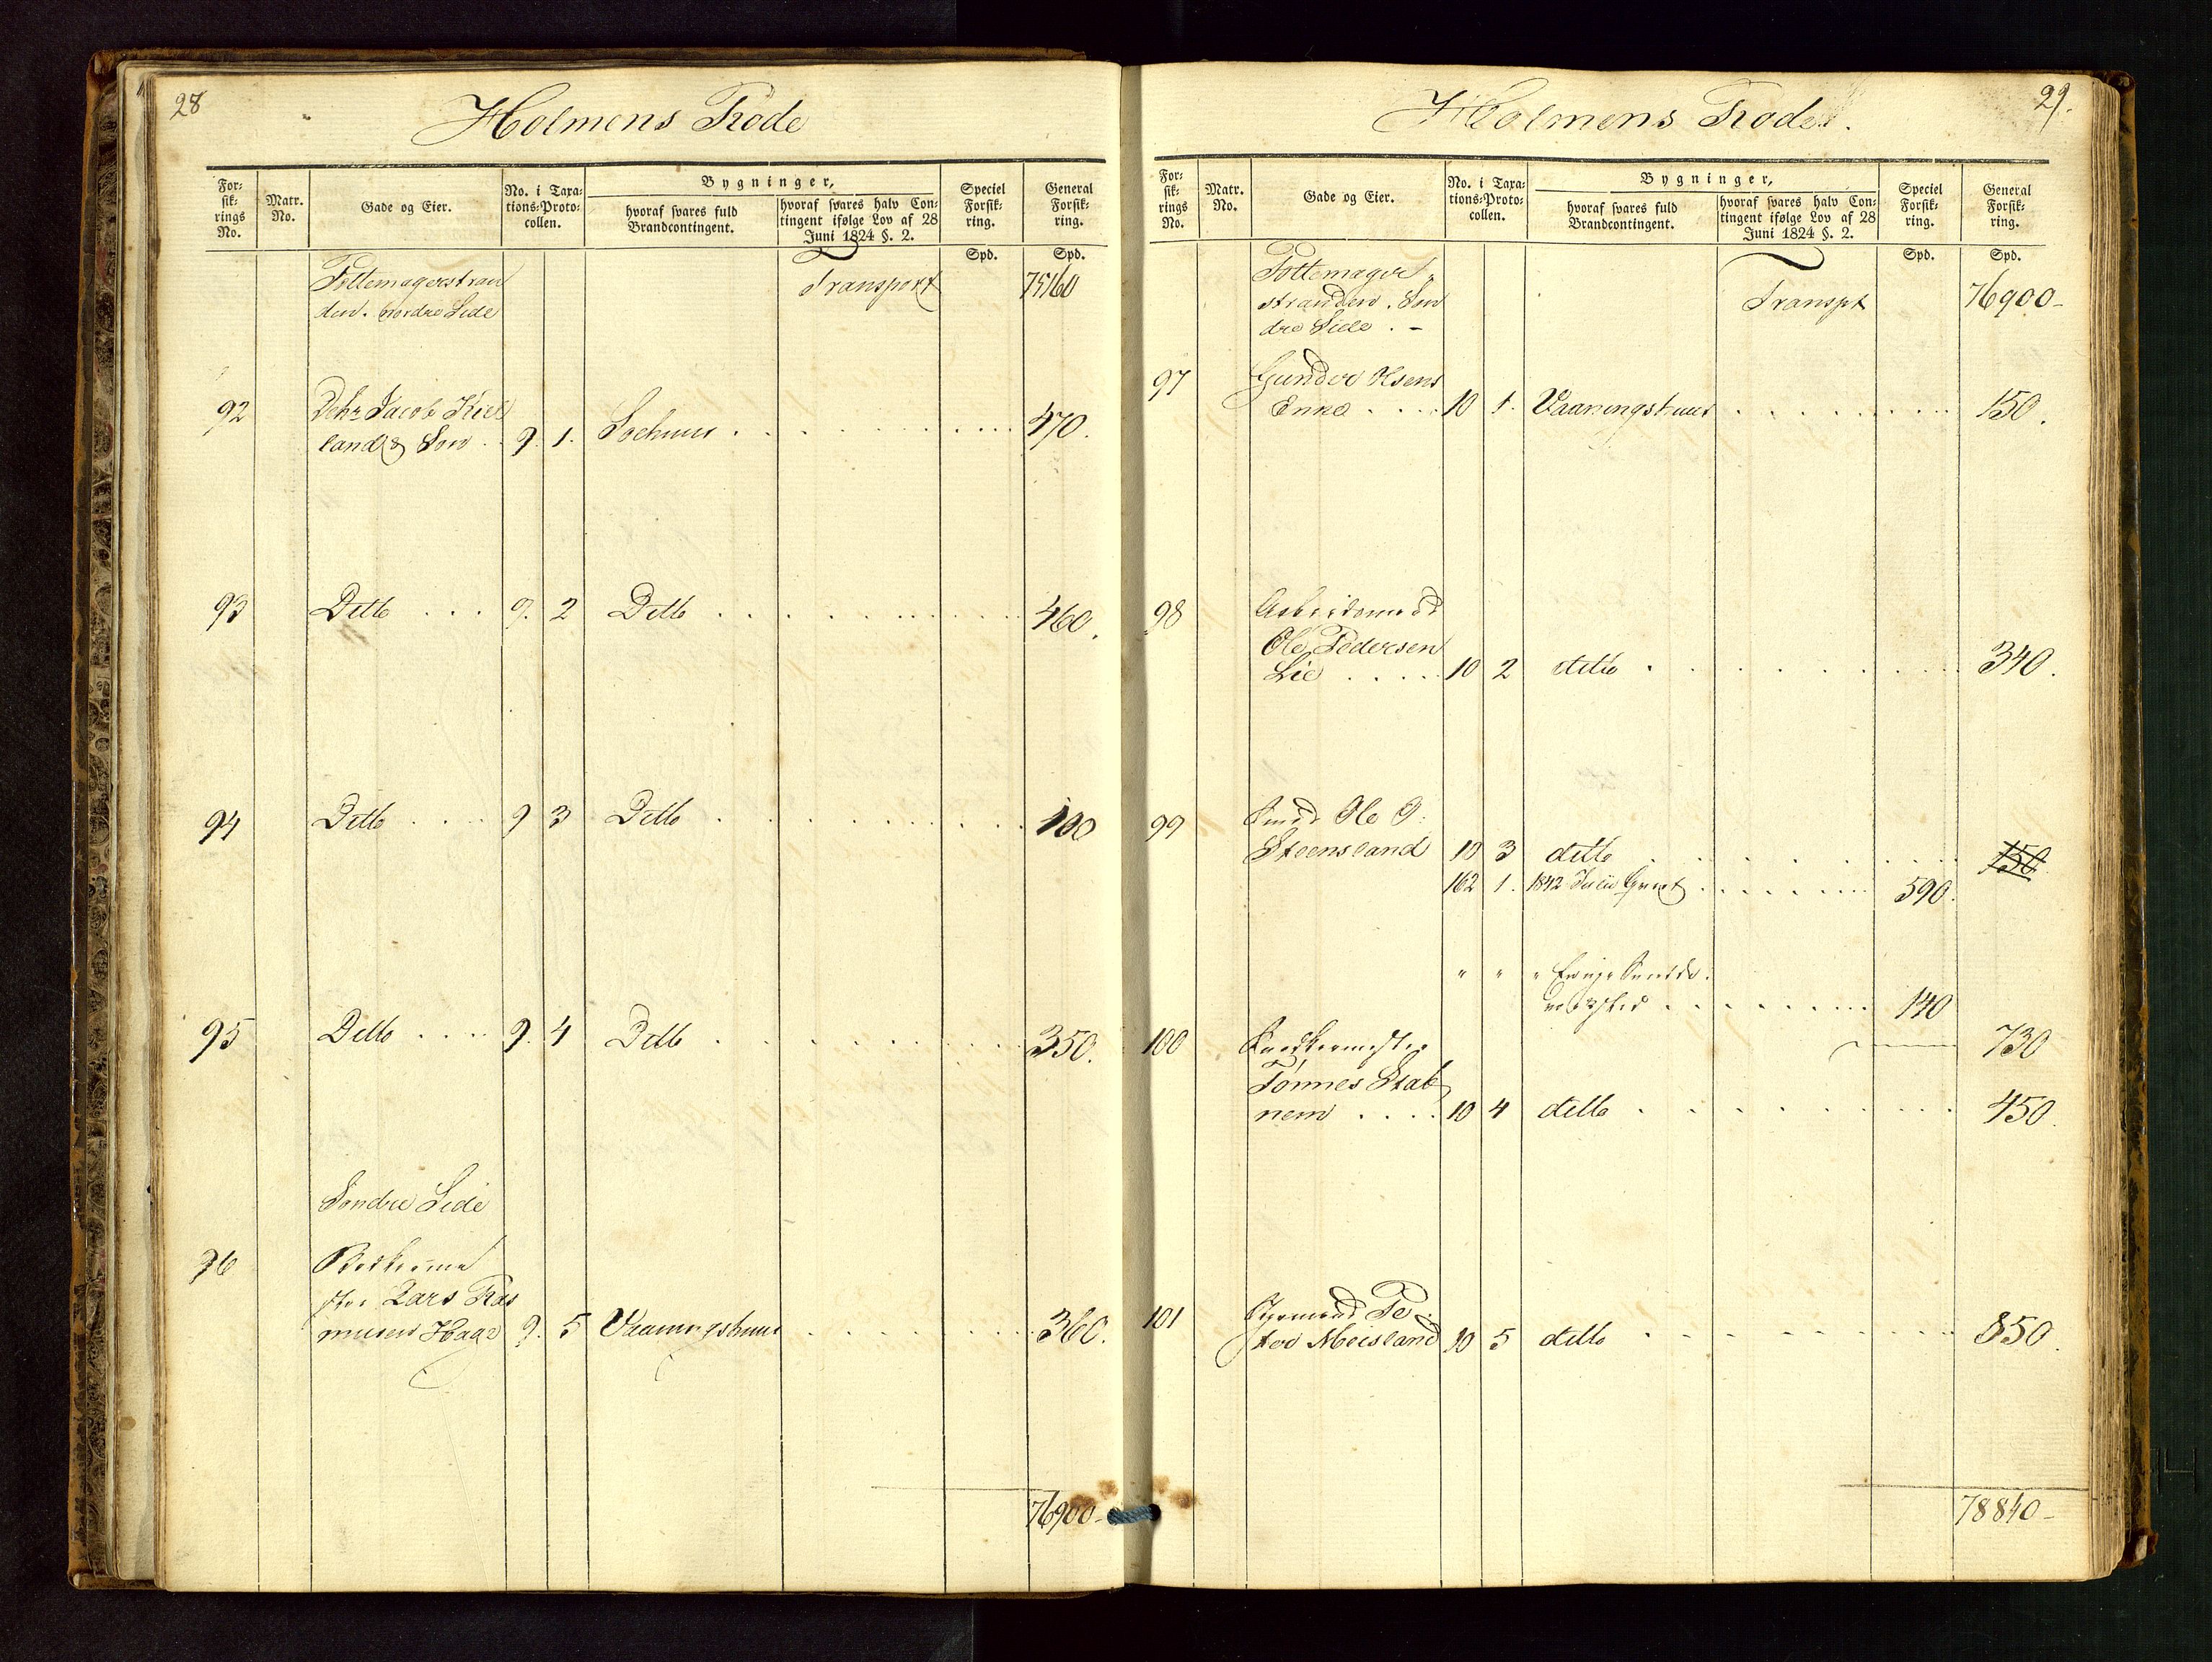 28
Holmens Rode
For-
sik-
rings
No.
Matr.
No.
Gade og Eier.
No. i Taxa-
tions-Proto-
collen.
Bygninger,
hvoraf svares fuld
Brandcontingent.
hvoraf svares halv Con-
tingent ifølge Lov af 28
Juni 1824 §. 2.
Speciel
Forsik-
ring.
General
Forsik-
ring.
Spd. Spd.
Pottemagerstran
den. nordre Side
Transport 75160
92 Dehr Jacob Kiel
land & Søn . . 9. 1. Søehuus . . . . . . . . . . 470.
93 Detto . . . 9. 2 Detto . . . . . . . . . . 460.
94 Detto . . . . 9 3 Detto . . . . . . . . . . 100
95 Detto . . . . 9. 4 Detto . . . . . . . . . . 350.
Søndre Side
96 Bødkerme
ster Lars Ras
musen Hage 9. 5 Vaaningshuus . . . . . . . . 360.
76900-
29.
Holmens Rode.
For-
sik-
rings
No.
Matr.
No.
Gade og Eier.
No. i Taxa-
tions-Proto-
collen.
Bygninger,
hvoraf svares fuld
Brandcontingent.
hvoraf svares halv Con-
tingent ifølge Lov af 28
Juni 1824 §. 2.
Speciel
Forsik-
ring.
General
Forsik-
ring.
Spd. Spd.
Pottemager-
stranden. Søn
dre Side . -
Transpt 76900-
97 Gunder Olsens
Enke . . . . 10 1. Vaaningshuus . . . . . . . . . 150.
98 Arbeidsmand
Ole Pedersen
Lie . . . . 10 2 ditto . . . . . . . . . 340.
99 Smed Ole P.
Steensland 10 3 ditto . . . . . . . . 150
162 1. 1842 . . . . . . . 590.
" " "
værksted . . . . . . . 140
730
100 Snedkermester
Tønnes Stab
nem . . . . 10 4 ditto . . . . . . . . . 450.
101 Styrmand Pe-
ter Moisland 10 5 ditto . . . . . . . . . 850.
78840-